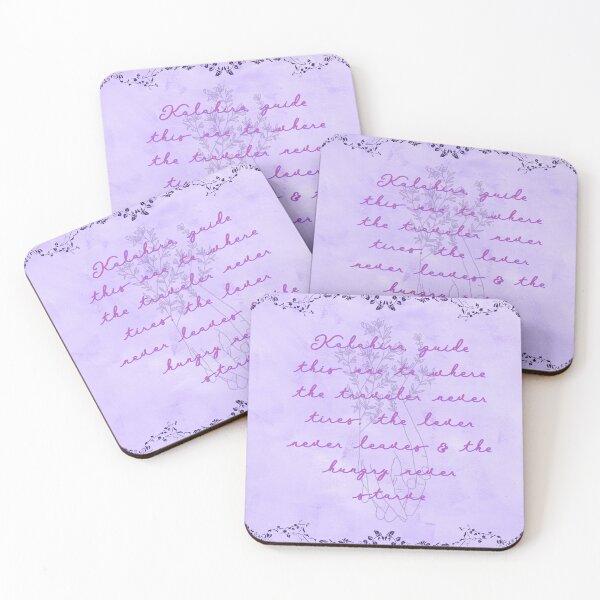 Kalahira guide
this one to where
the traveler never
the lover
& the
Kalahira guide
this one to where
the traveler never
tires, the lover
never leaves & the
Kalahira guide
this one to where
the traveler never
tires, the lover
never leaves &
hungry
Kalahira guide
this one to where
the traveler never
tires, the lover
never leaves & the
hungry never
starve